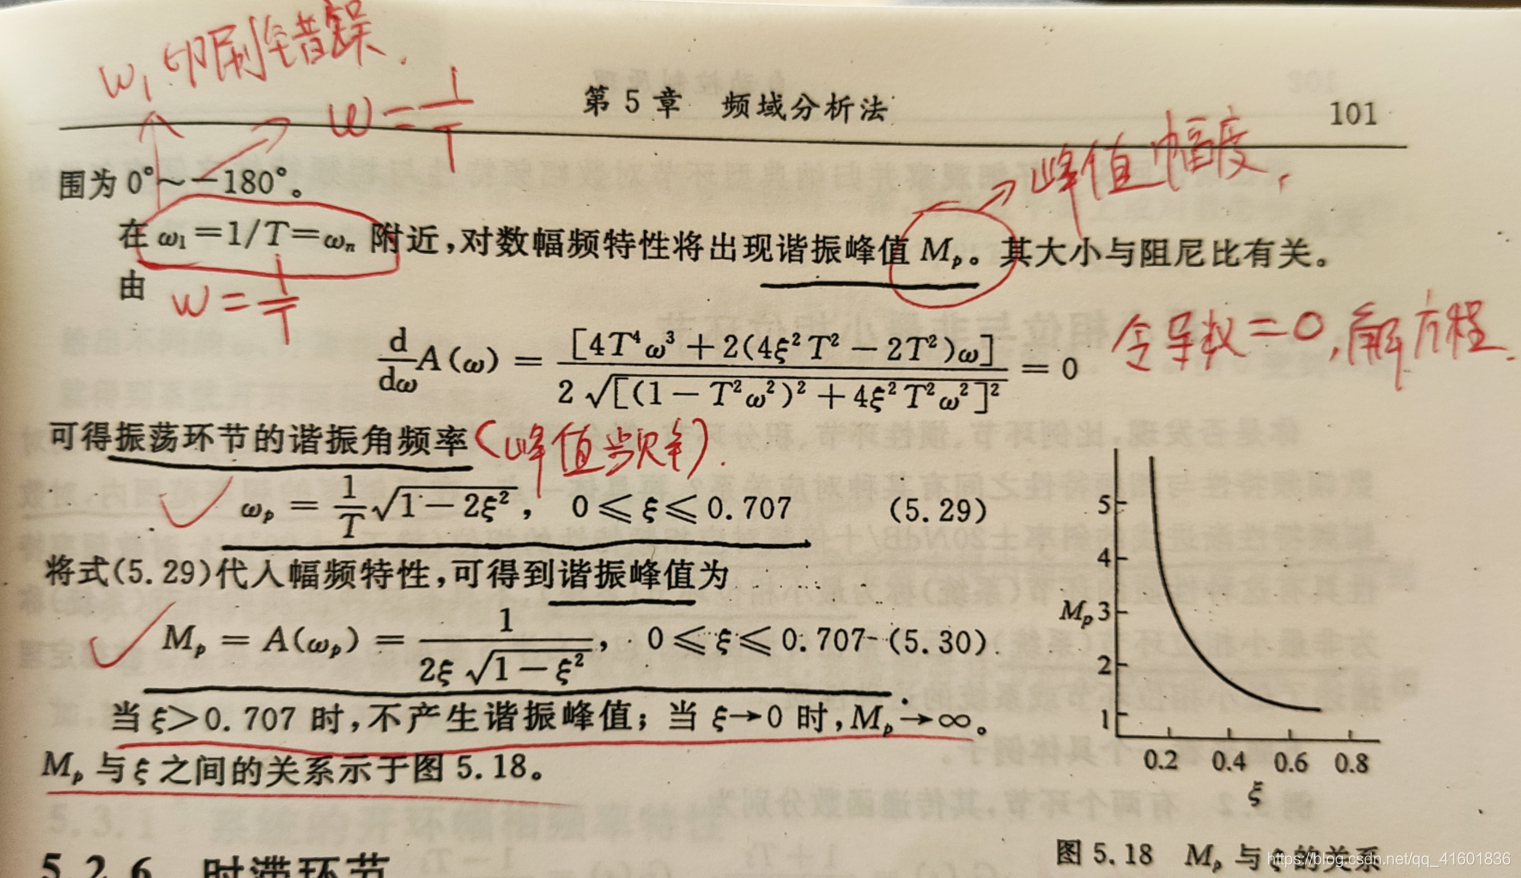 ω₁印刷错误.
ω = 1/T
第5章 频域分析法 101
峰值幅度,
围为0°～−180°。
在ω₁=1/T=ωₙ附近,对数幅频特性将出现谐振峰值Mₚ。其大小与阻尼比有关。
由
ω = 1/T
令导数=0,解方程.
d/dω A(ω) = [4T⁴ω³ + 2(4ξ²T² − 2T²)ω] / 2√[(1 − T²ω²)² + 4ξ²T²ω²]² = 0
可得振荡环节的谐振角频率(峰值频率).
ωₚ = 1/T √1−2ξ², 0≤ξ≤0.707 (5.29)
将式(5.29)代入幅频特性,可得到谐振峰值为
Mₚ = A(ωₚ) = 1 / 2ξ√1−ξ², 0≤ξ≤0.707 (5.30)
当ξ>0.707时,不产生谐振峰值；当ξ→0时,Mₚ→∞。
Mₚ与ξ之间的关系示于图5.18。
5
4
Mₚ 3
2
1
0.2 0.4 0.6 0.8
ξ
图5.18 Mₚ与ξ的关系
5.2.6 时滞环节
https://blog.csdn.net/qq_41601836